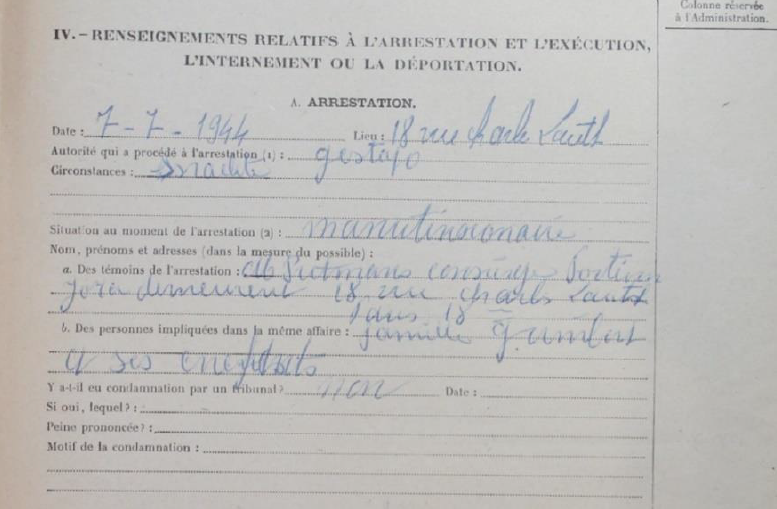 Colonne réservée
à l'Administration.
IV. - RENSEIGNEMENTS RELATIFS À L'ARRESTATION ET L'EXÉCUTION,
L'INTERNEMENT OU LA DÉPORTATION.
A. ARRESTATION.
Date : 7 - 7 - 1944 Lieu : 18 rue Charle Lauth
Autorité qui a procédé à l'arrestation (1) : gestapo
Circonstances :
Situation au moment de l'arrestation (2) : manutinsionaire
Nom, prénoms et adresses (dans la mesure du possible) :
a. Des témoins de l'arrestation :
18 rue Charles Lauth
Paris 18
b. Des personnes impliquées dans la même affaire : famille
et ses
Y a-t-il eu condamnation par un tribunal ? non Date :
Si oui, lequel ? :
Peine prononcée ? :
Motif de la condamnation :